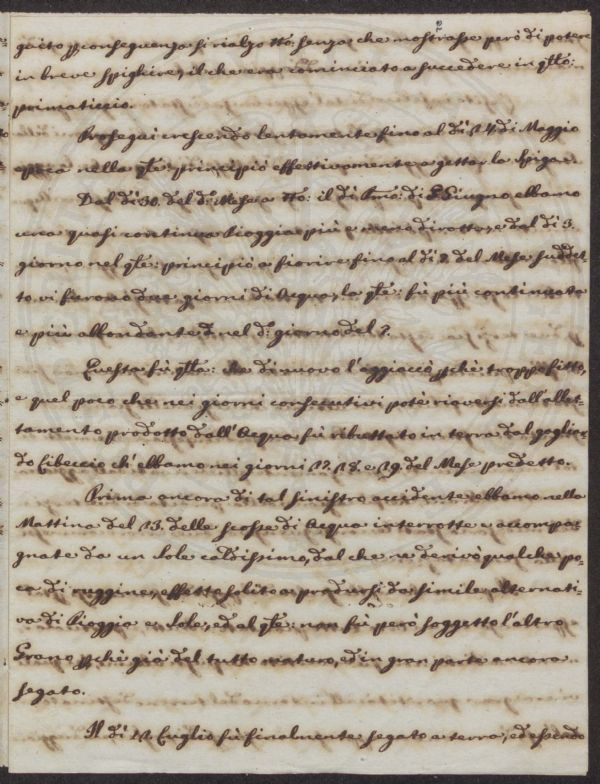 guito p conseguenza si rialzò tto: senza che mostrasse però di potere
in breve spighire, il che era cominciato a succedere in qllo:
primaticcio.
Proseguì crescendo lentamente fino al dì 24 di Maggio
epoca nella qle: principiò effettivamente a gettar la spiga.
Dal dì 30. del do: Mese a tto: il dì Pmo: di Giugno ebbamo
una quasi continua Pioggia più e meno dirotta, e dal dì 3.
giorno nel qle: principiò a fiorire fino al dì 9. del Mese suddet-
to, vi furono due giorni di Acqua, la qle: fù più continuata
e più abbondante, nel do: giorno del 7.
Questa fù qlla: che di nuovo l'aggiaccò pchè troppo fitto,
e quel poco che nei giorni consecutivi potè riaversi dall'allet-
tamento prodotto dall'Acqua fù ributtato in terra dal gagliar-
do Libeccio ch'ebbamo nei giorni 17. 18. e 19. del Mese predetto.
Prima ancora di tal sinistro accidente ebbamo nella
Mattina del 13. delle scosse di Acqua interrotte e accompa-
gnate da un sole caldissimo, dal che ne derivò qualche po-
ca di ruggine, effetto solito a prodursi da simile alternati-
va di Pioggia e sole, ed al qle: non fù però soggetto l'altro
Grano pchè già del tutto maturo, ed in gran parte ancora
segato.
Il dì Luglio fù finalmente segato a terra, ed essendo